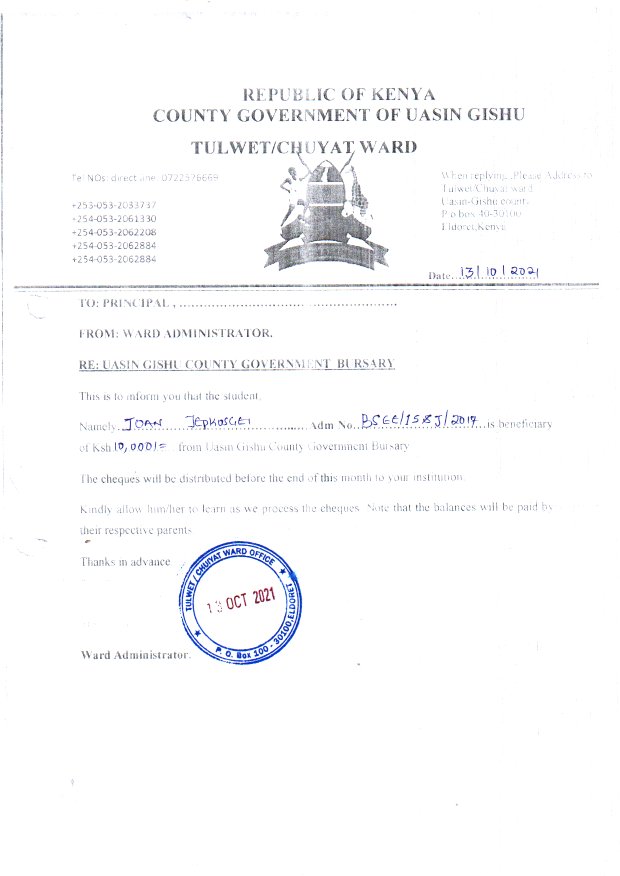 REPUBLIC OF KENYA
COUNTY GOVERNMENT OF UASIN GISHU
TULWET/CHUYAT WARD
Tel NOs: direct line :0722576669
+253-053-2033737
+254-053-2061330
+254-053-2062208
+254-053-2062884
+254-053-2062884
When replying, Please Address to
Tulwet/Chuyat ward
Uasin-Gishu county
P.o box 40-30100
Eldoret,Kenya
Date 13/10/2021
TO: PRINCIPAL , ……………………………………………
FROM: WARD ADMINISTRATOR.
RE: UASIN GISHU COUNTY GOVERNMENT BURSARY
This is to inform you that the student,
Namely JOAN JEPKOSGEI Adm No. is beneficiary
of Ksh 10,000/= from Uasin Gishu County Government Bursary
The cheques will be distributed before the end of this month to your institution.
Kindly allow him/her to learn as we process the cheques. Note that the balances will be paid by
their respective parents
Thanks in advance.
TULWET / CHUIYAT WARD OFFICE
13 OCT 2021
P. O. Box 100 - 30100, ELDORET
Ward Administrator.